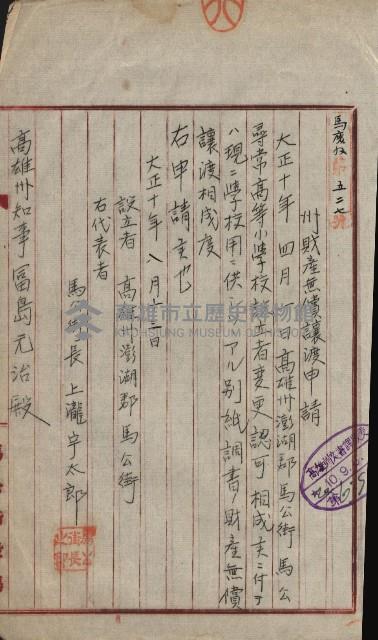 馬庶收第五二七號
州財產無償讓渡申請
大正十年四月一日高雄州澎湖郡馬公街馬公
尋常高等小學校設立者變更認可相成候ニ付テ
ハ現ニ學校用ニ供シアル別紙調書ノ財產無償
讓渡相成度
右申請候也
大正十年八月 日
設立者 高雄州澎湖郡馬公街
右代表者
馬公街長 上瀧宇太郎
高雄州知事富島元治殿
高雄市立歷史博物館
KAOHSIUNG MUSEUM OF HISTORY
10.9.